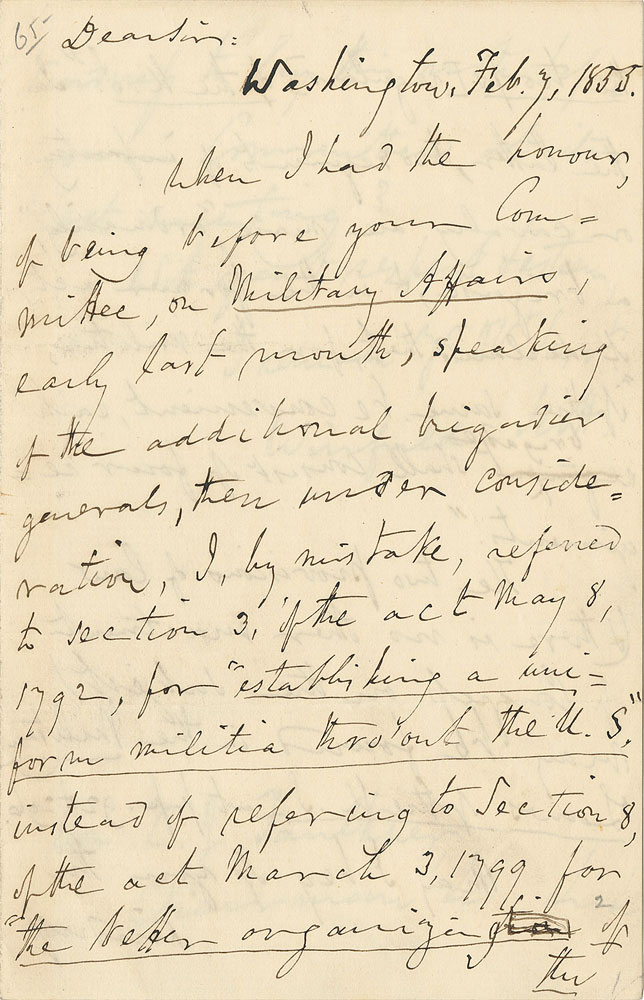 65
Dear Sir:
Washington, Feb. 7, 1855.
When I had the honour,
of being before your Com=
mittee, on Military Affairs,
early last month, speaking
of the additional brigadier
generals, then under conside=
ration, I, by mistake, referred
to section 3, of the act May 8,
1792, for "establishing a uni=
form militia thro'out the U. S."
instead of referring to Section 8,
of the act March 3, 1799 for
"the better organizing of
2
the